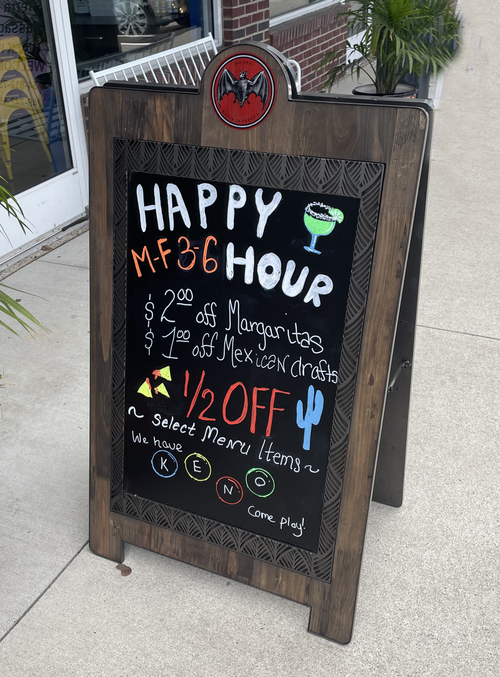 HAPPY
M-F 3-6 HOUR
$2.00 off Margaritas
$1.00 off Mexican drafts
1/2 OFF
~ Select Menu Items ~
We have
K E N O
Come play!